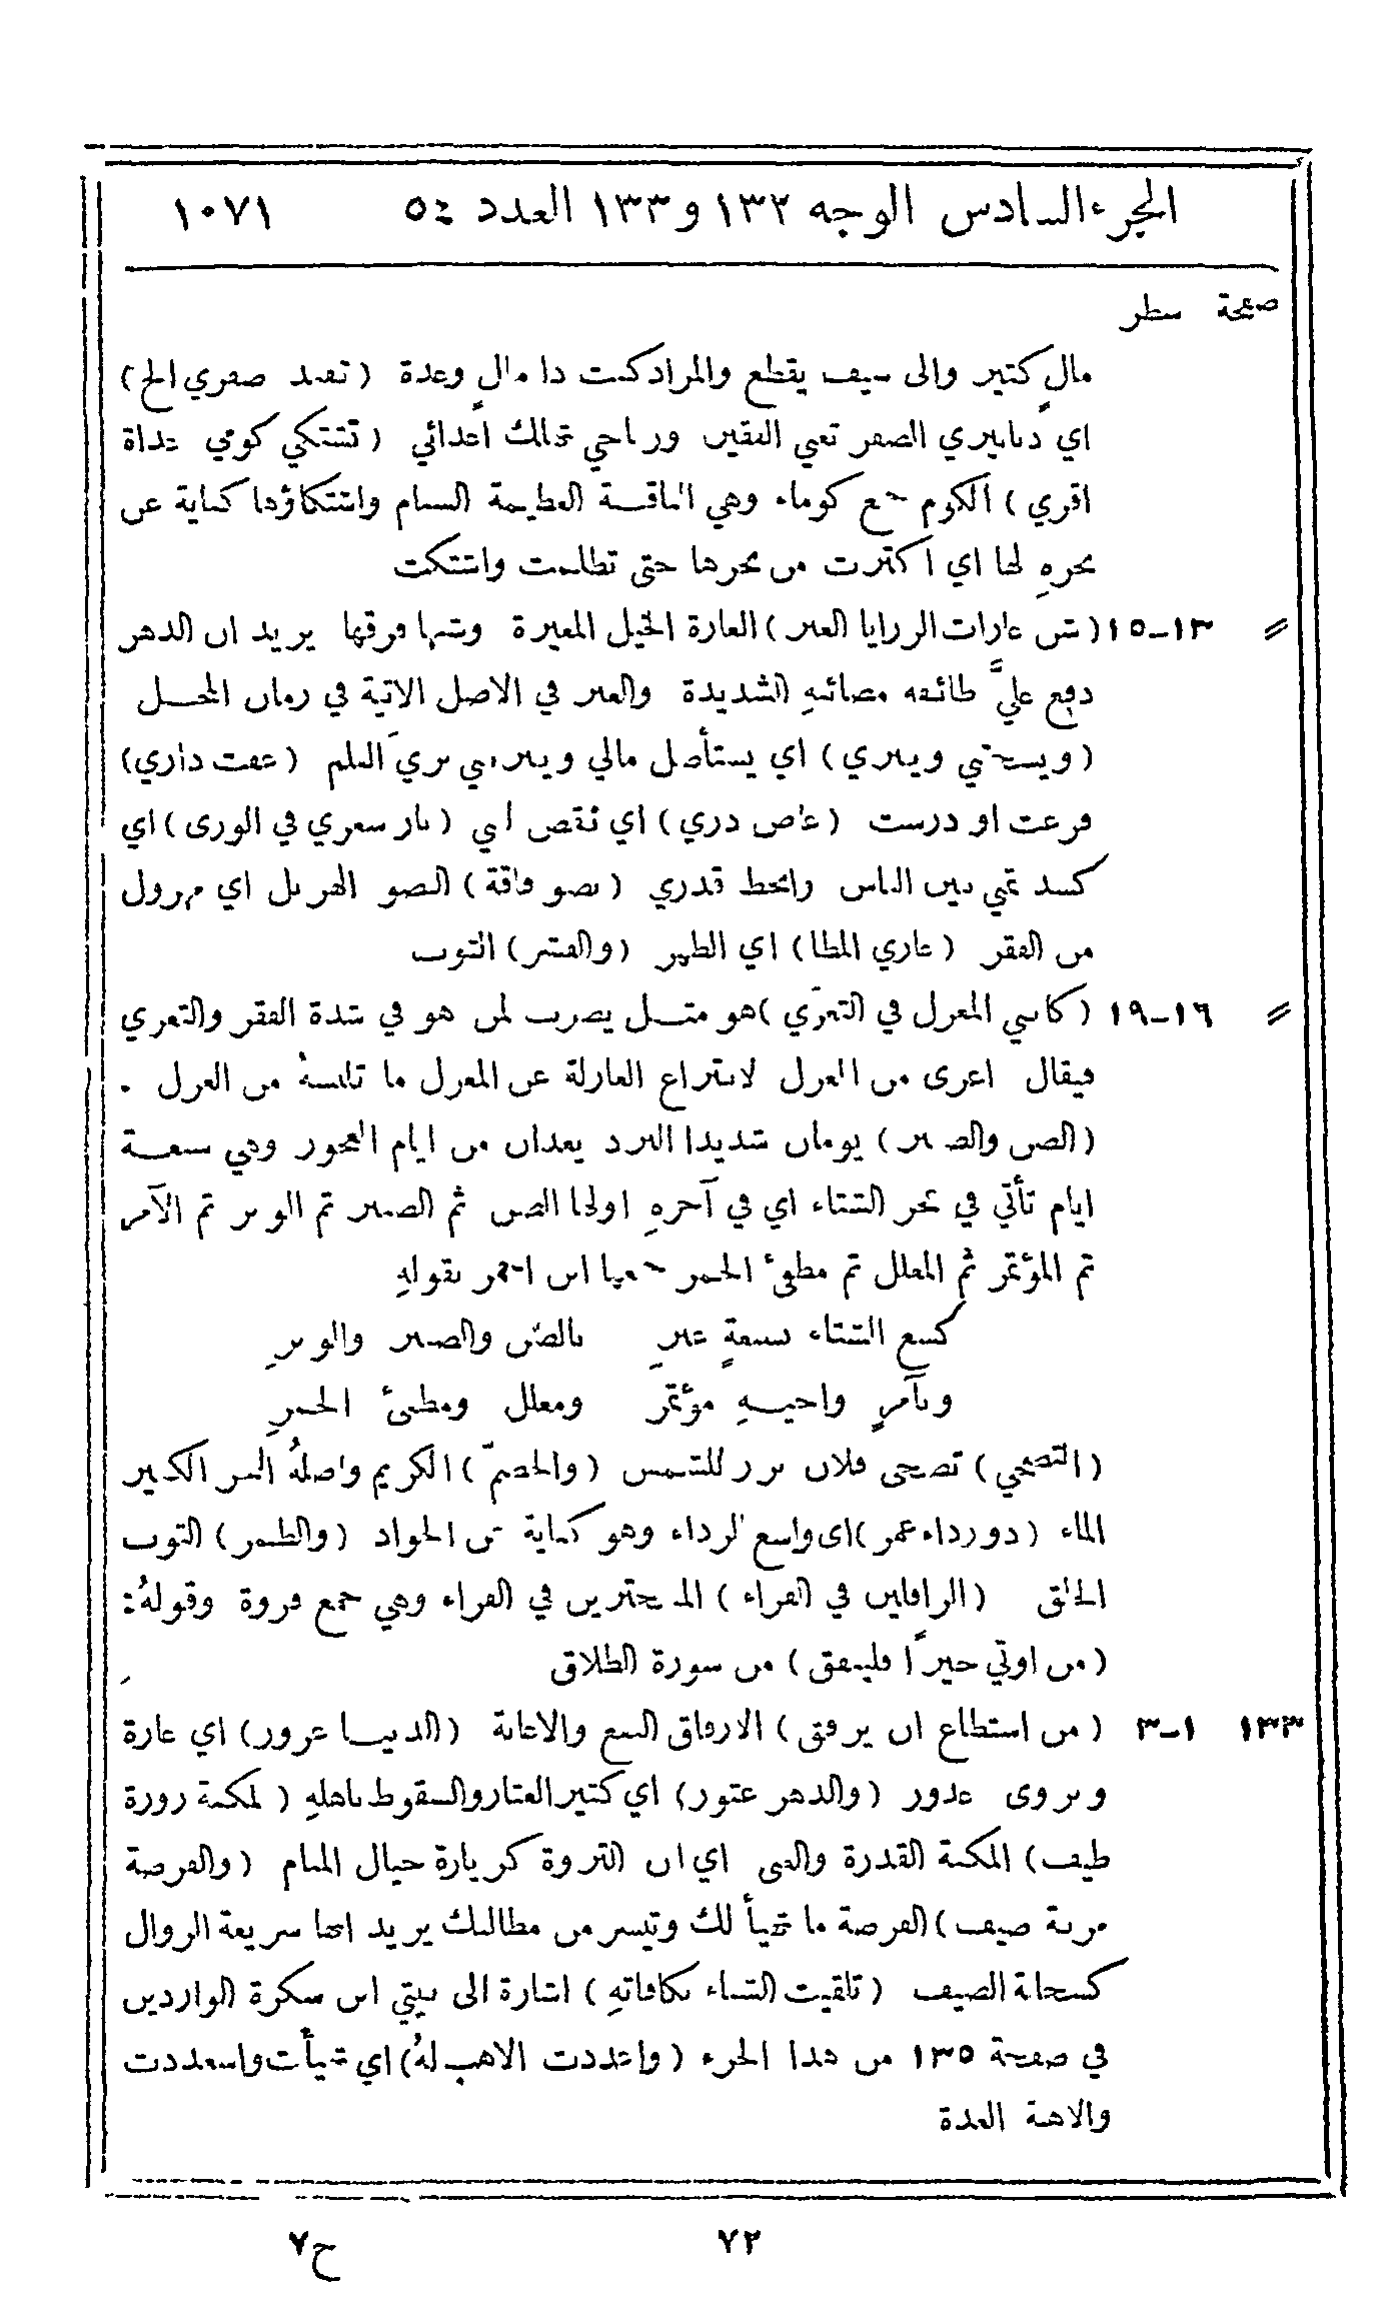 الجزء السادس الوجه ١٣٢ و ١٣٣ العدد ٥٤ ١٠٧١
صفحة سطر
مالٍ كثير والى سيف يقطع والمراد كنت ذا مالٍ وعدة (تفيد صفري الخ)
اي دنانيري الصفر تغني الفقير ورماحي تهلك اعدائي (تشتكي كومي غداة
اقري) الكوم جمع كوماء وهي الناقة العظيمة السنام واشتكاؤها كناية عن
نحرهِ لها اي اكثرت من نحرها حتى تظلمت واشتكت
〃 ١٣–١٥ (شن غارات الرزايا الغبر) الغارة الخيل المغيرة وشنها فرقها يريد ان الدهر
دفع عليَّ طائفة مصائبهِ الشديدة والغبر في الاصل الاتية في زمان المحل
(ويسحتني ويبري) اي يستأصل مالي ويبريني بريَ القلم (عفت داري)
فرعت او درست (غاض دري) اي نقص لبني (بار سعري في الورى) اي
كسد ثمني بين الناس وانحط قدري (نضو فاقة) النضو الهزيل اي مهزول
من الفقر (عاري المطا) اي الظهر (والقشر) الثوب
〃 ١٦–١٩ (كاسي المغزل في التعرّي) هو مثل يضرب لمن هو في شدة الفقر والتعري
فيقال اعرى من المغزل لانتزاع الغازلة عن المغزل ما تلبسهُ من الغزل .
(الصن والصنبر) يومان شديدا البرد يعدان من ايام العجوز وهي سبعة
ايام تأتي في عجز الشتاء اي في آخرهِ اولها الصن ثم الصنبر ثم الوبر ثم الآمر
ثم المؤتمر ثم المعلل ثم مطفئ الجمر جمعها ابن احمر بقولهِ
كسع الشتاء بسبعةٍ غبرِ بالصّن والصنبر والوبرِ
وبآمرٍ واخيهِ مؤتمر ومعلل ومطفئ الجمرِ
(التضحي) تضحى فلان برز للشمس (والخضمّ) الكريم واصلهُ البئر الكثير
الماء (ذو رداء غمر) اي واسع الرداء وهو كناية عن الجواد (والطمر) الثوب
الخلق (الرافلين في الفراء) المتبخترين في الفراء وهي جمع فروة وقولهُ:
(من اوتي خيرًا فلينفق) من سورة الطلاق
١٣٣ ١–٣ (من استطاع ان يرفق) الارفاق النفع والاعانة (الدنيا غرور) اي غارة
ويروى غدور (والدهر عثور) اي كثير العثار والسقوط باهلهِ (المكنة زورة
طيف) المكنة القدرة والغنى اي ان الثروة كزيارة خيال المنام (والفرصة
مزنة صيف) الفرصة ما تهيأ لك وتيسر من مطالبك يريد انها سريعة الزوال
كسحابة الصيف (تلقيت الشتاء بكافاتهِ) اشارة الى بيتي ابن سكرة الواردين
في صفحة ١٣٥ من هذا الجزء (واعددت الاهب لهُ) اي تهيأت واستعددت
والاهبة العدة
ح٧ ٧٢